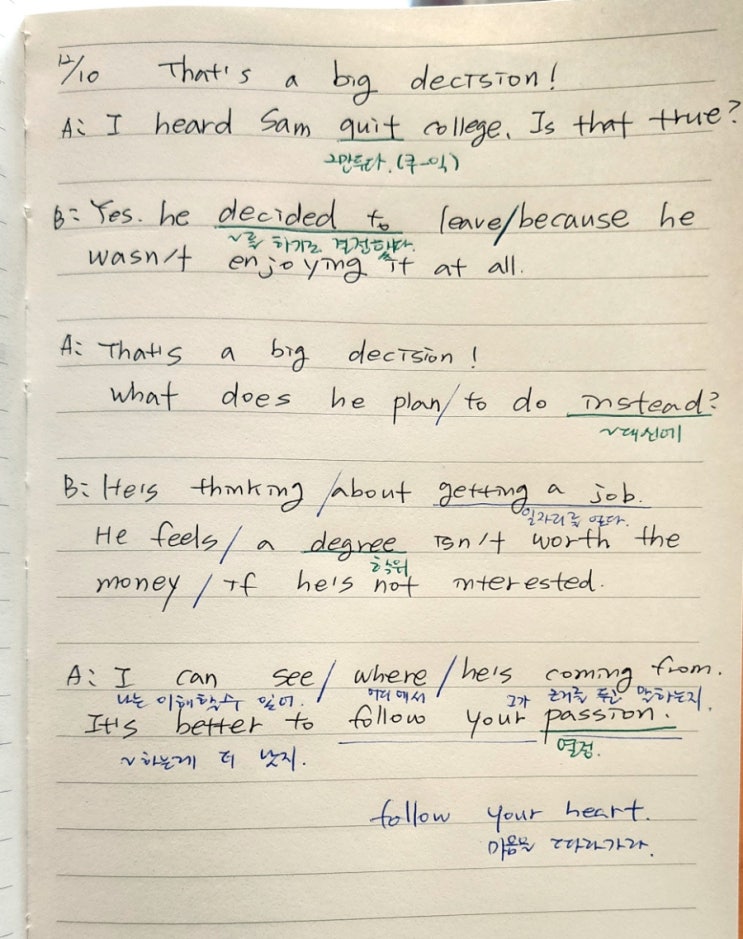 12/10 That's a big decision!
A: I heard Sam quit college. Is that true?
그만두다. (쿠-익)
B: Yes. he decided to leave/because he
~를 하기로 결정했다.
wasn't enjoying it at all.
A: That's a big decision!
What does he plan/to do instead?
~대신에
B: He's thinking/about getting a job.
일자리를 얻다.
He feels/a degree isn't worth the
학위
money/if he's not interested.
A: I can see/where/he's coming from.
나는 이해할수 있어. 어디에서 그가 근거를 두고 말하는지.
It's better to follow your passion.
~하는게 더 낫지. 열정.
follow your heart.
마음을 따라가라.